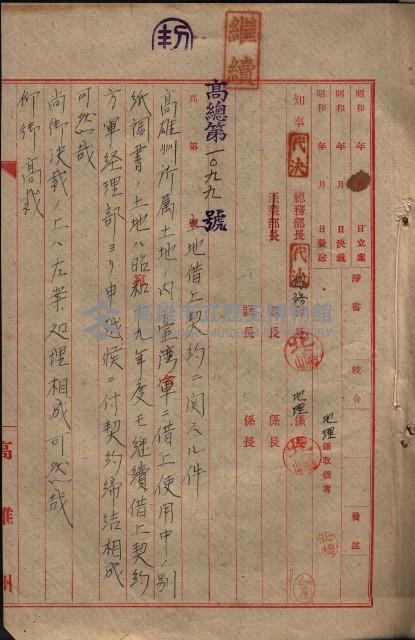 繼續
昭和 年 月 日立案
昭和 年 月 日決裁
昭和 年 月 日發送
淨書
校合
發送
知事
代決
總務部長
代決
產業部長
課長
課長
係長
係長
地理
地理係取扱者
高總第一〇九九號
高 第 號
土地借上契約ニ関スル件
高雄州所属土地ノ內台湾軍ニ借上使用中ノ別
紙調書ノ土地ハ昭和九年度モ継續借上契約
方軍経理部ヨリ申越候ニ付契約締結相成
可然哉
尚御決裁ノ上ハ左案処理相成可然哉
仰御高裁
高雄州
高雄市立歷史博物館